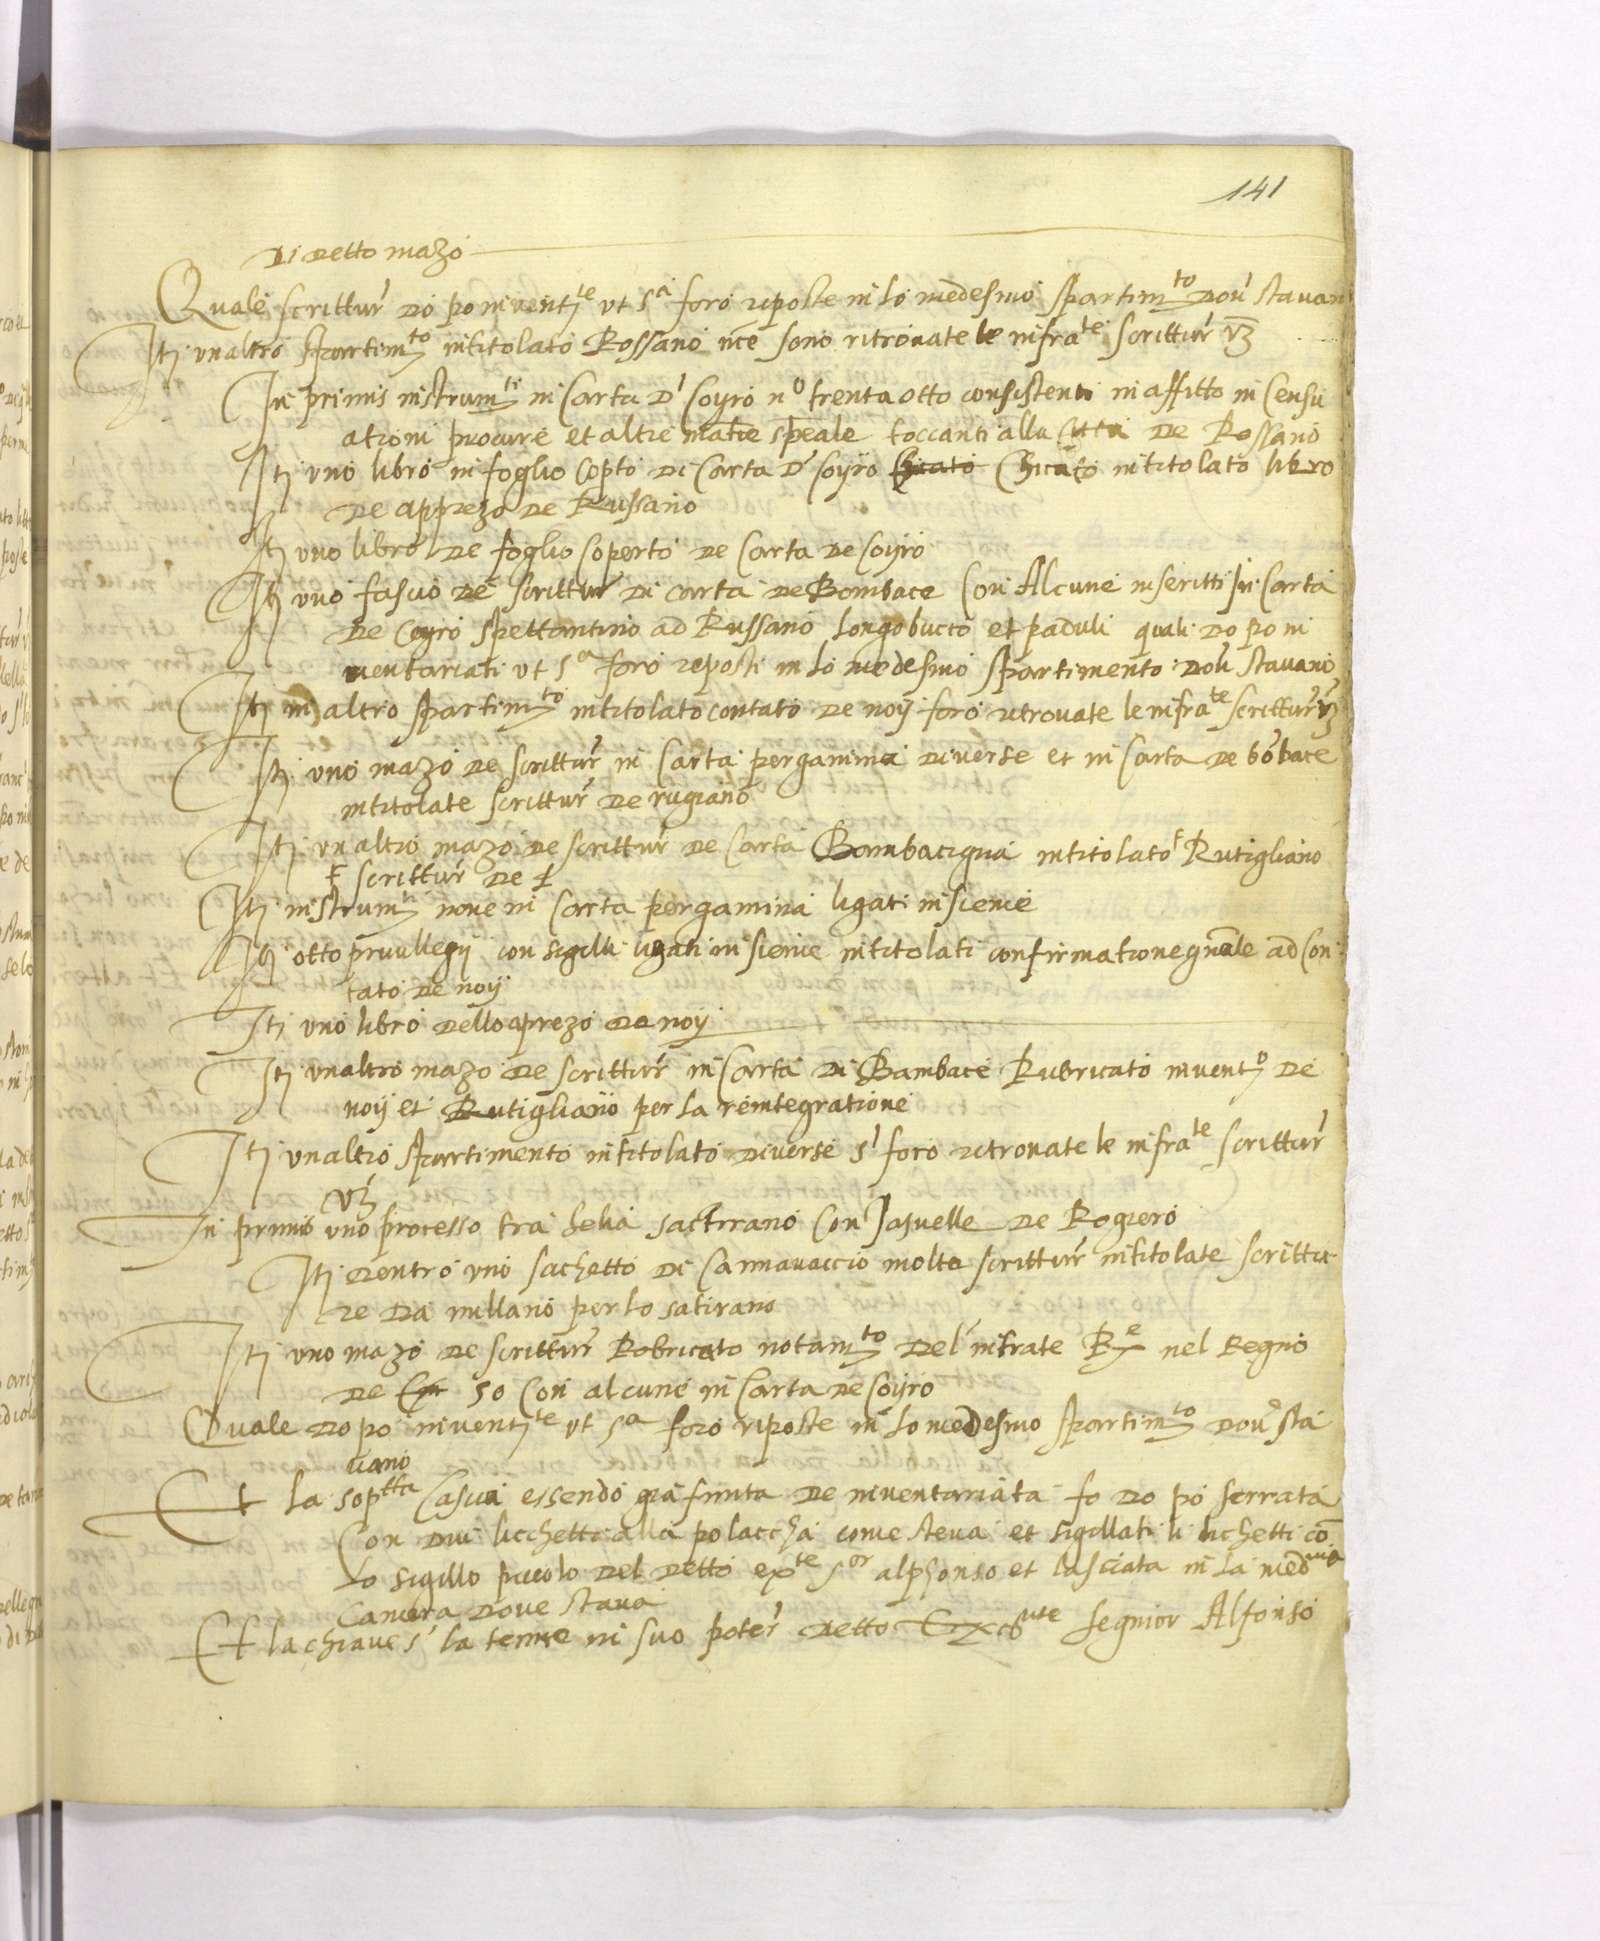 141
Di detto mazo
Quale scrittur' do po inventte ut sa foro reposte in lo medesmo spartimto dov' stavan
Itj un altro spartimto intitolato Rossano nce sono ritrovate le infrate scrittur' vz
In primis instrumti in Carta d' coyro no trenta otto consistenti in affitto in Censu
ationi procure et altre matie speale toccanti alla Citta de Rossano
Itj uno libro in foglio copto di Carta d' coyro intitolato libro
de apprezo de Russano
Itj uno libro de foglio coperto de Carta de Coyro
Itj uno fascio de scrittur' di carta de Bombace Con Alcune inseritti in Carta
de Coyro spettantino ad Russano longobucco et paduli quali do po in
ventariati ut sa foro reposti in lo medesmo spartimento dov' stavano
Itj in altro spartimto intitolato contato de noij foro retrovate le infrate scrittur' vz
Itj uno mazo de scrittur' in Carta pergamina diverse et in Carta de bobace
intitolate scrittur' de rugiano
Itj un altro mazo de scrittur' de Carta Bambacigna intitolato Rutigliano
scrittur' de
Itj instrumti nove in Carta pergamina ligati insieme
Itj otto privilegij con sigilli ligati insieme intitolati confirmatione gnale ad Con
tato de noij
Itj uno libro dello aprezo de noij
Itj un altro mazo de scrittur' in Carta di Bambace Rubricato inventro de
noij et Rutigliano per la reintegratione
Itj un altro spartimento intitolato diverse s' foro retrovate le infrate scrittur'
vz
In primis uno processo tra helia sactirano Con de Rogiero
Itj dentro uno sachetto di Cannavaccio molte scrittur' intitolate scrittu
re da millano per lo satirano
Itj uno mazo de scrittur' Robricato notamto del' intrate Re nel Regno
de 50 Con alcune in Carta de Coyro
Quale do po inventte ut sa foro riposte in lo medesmo spartimto dov' sta
vano
Et la soptta Cascia essendo gia finita de inventariata fo do po serrata
Con dui licchetti alla polaccha come steva et sigillati li lichetti co
lo sigillo piccolo del detto exte sor alphonso et lasciata in la medma
Camera dove stava
Et la chiave s' la tenne in suo poter' detto segnior Alfonso